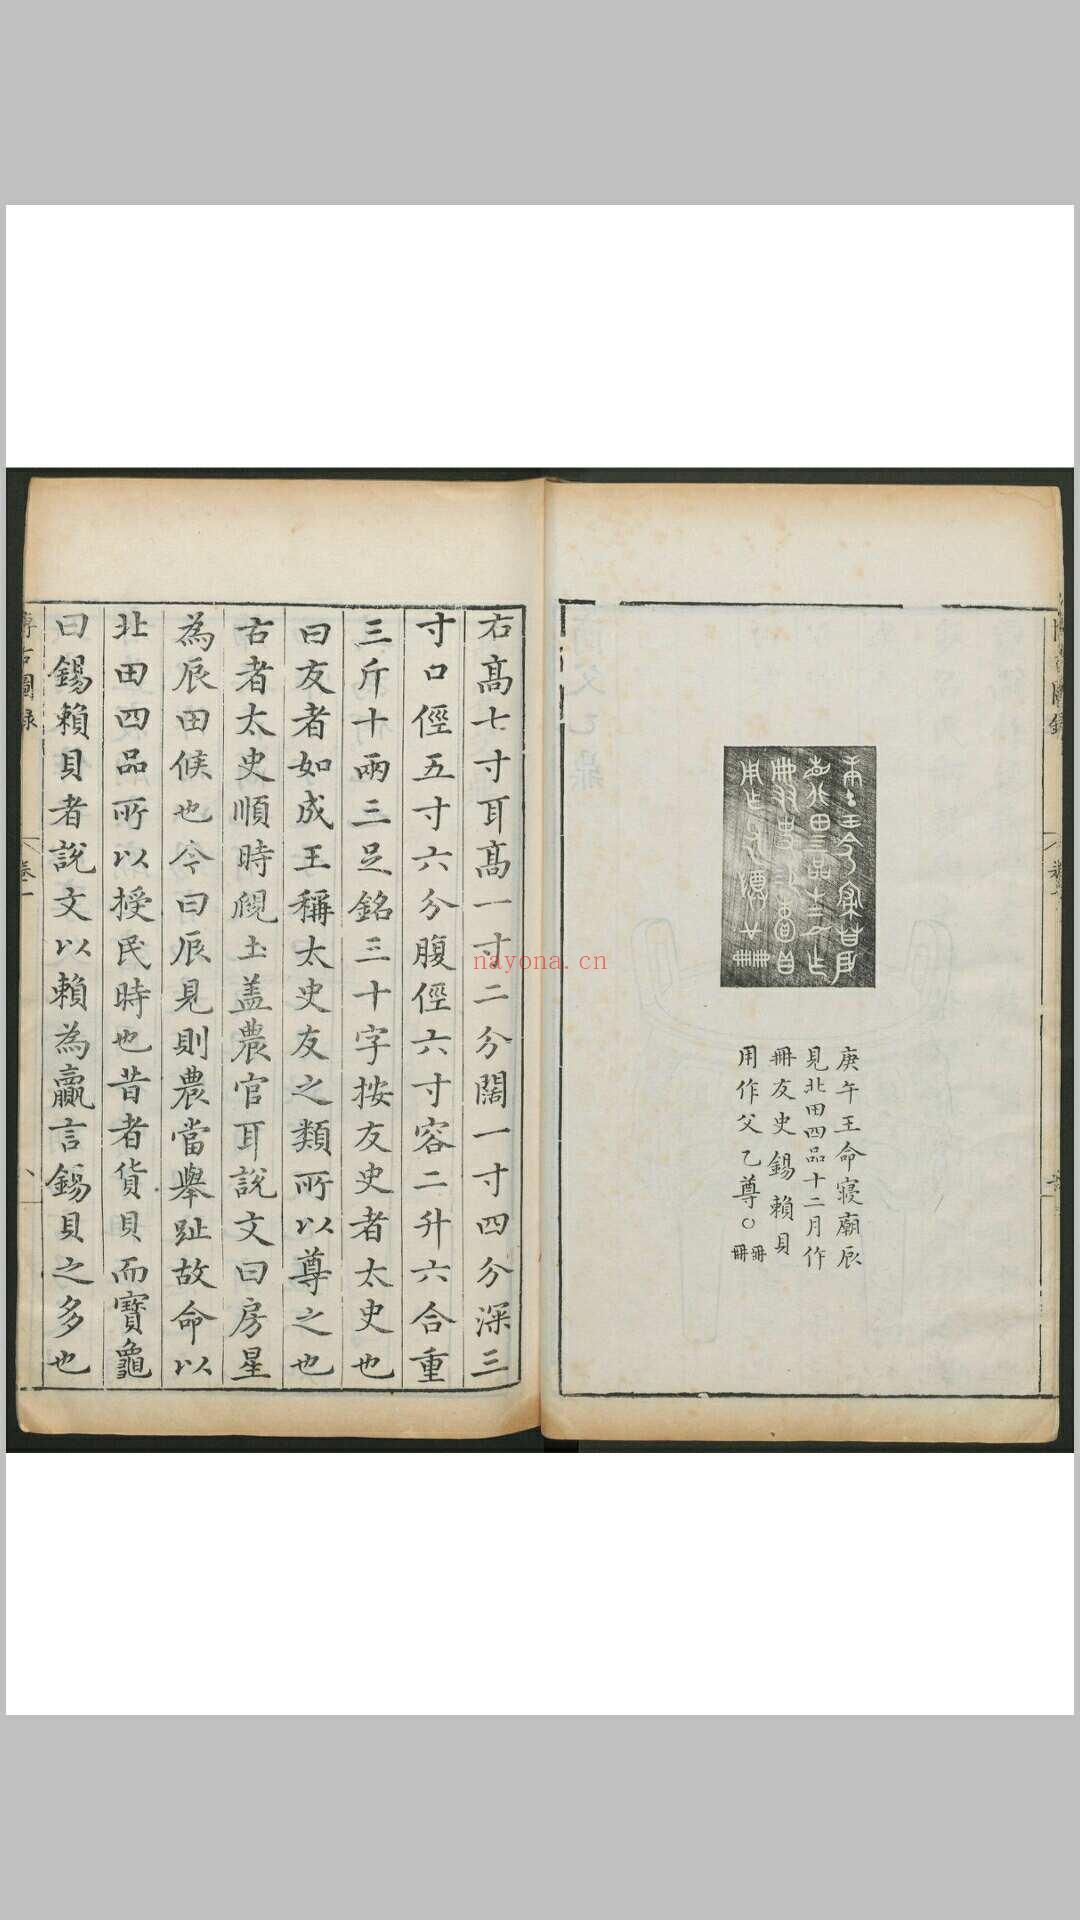 庚午王命寢廟辰
見北田四品十二月作
冊友史錫賴貝
用作父乙尊〇冊冊
右高七寸耳高一寸二分闊一寸四分深三
寸口徑五寸六分腹徑六寸容二升六合重
三斤十兩三足銘三十字按友史者太史也
曰友者如成王稱太史友之類所以尊之也
古者太史順時覛土盖農官耳說文曰房星
為辰田候也今曰辰見則農當舉趾故命以
北田四品所以授民時也昔者貨貝而寶龜
曰錫賴貝者說文以賴為贏言錫貝之多也
博古圖錄
卷一
nayona.cn